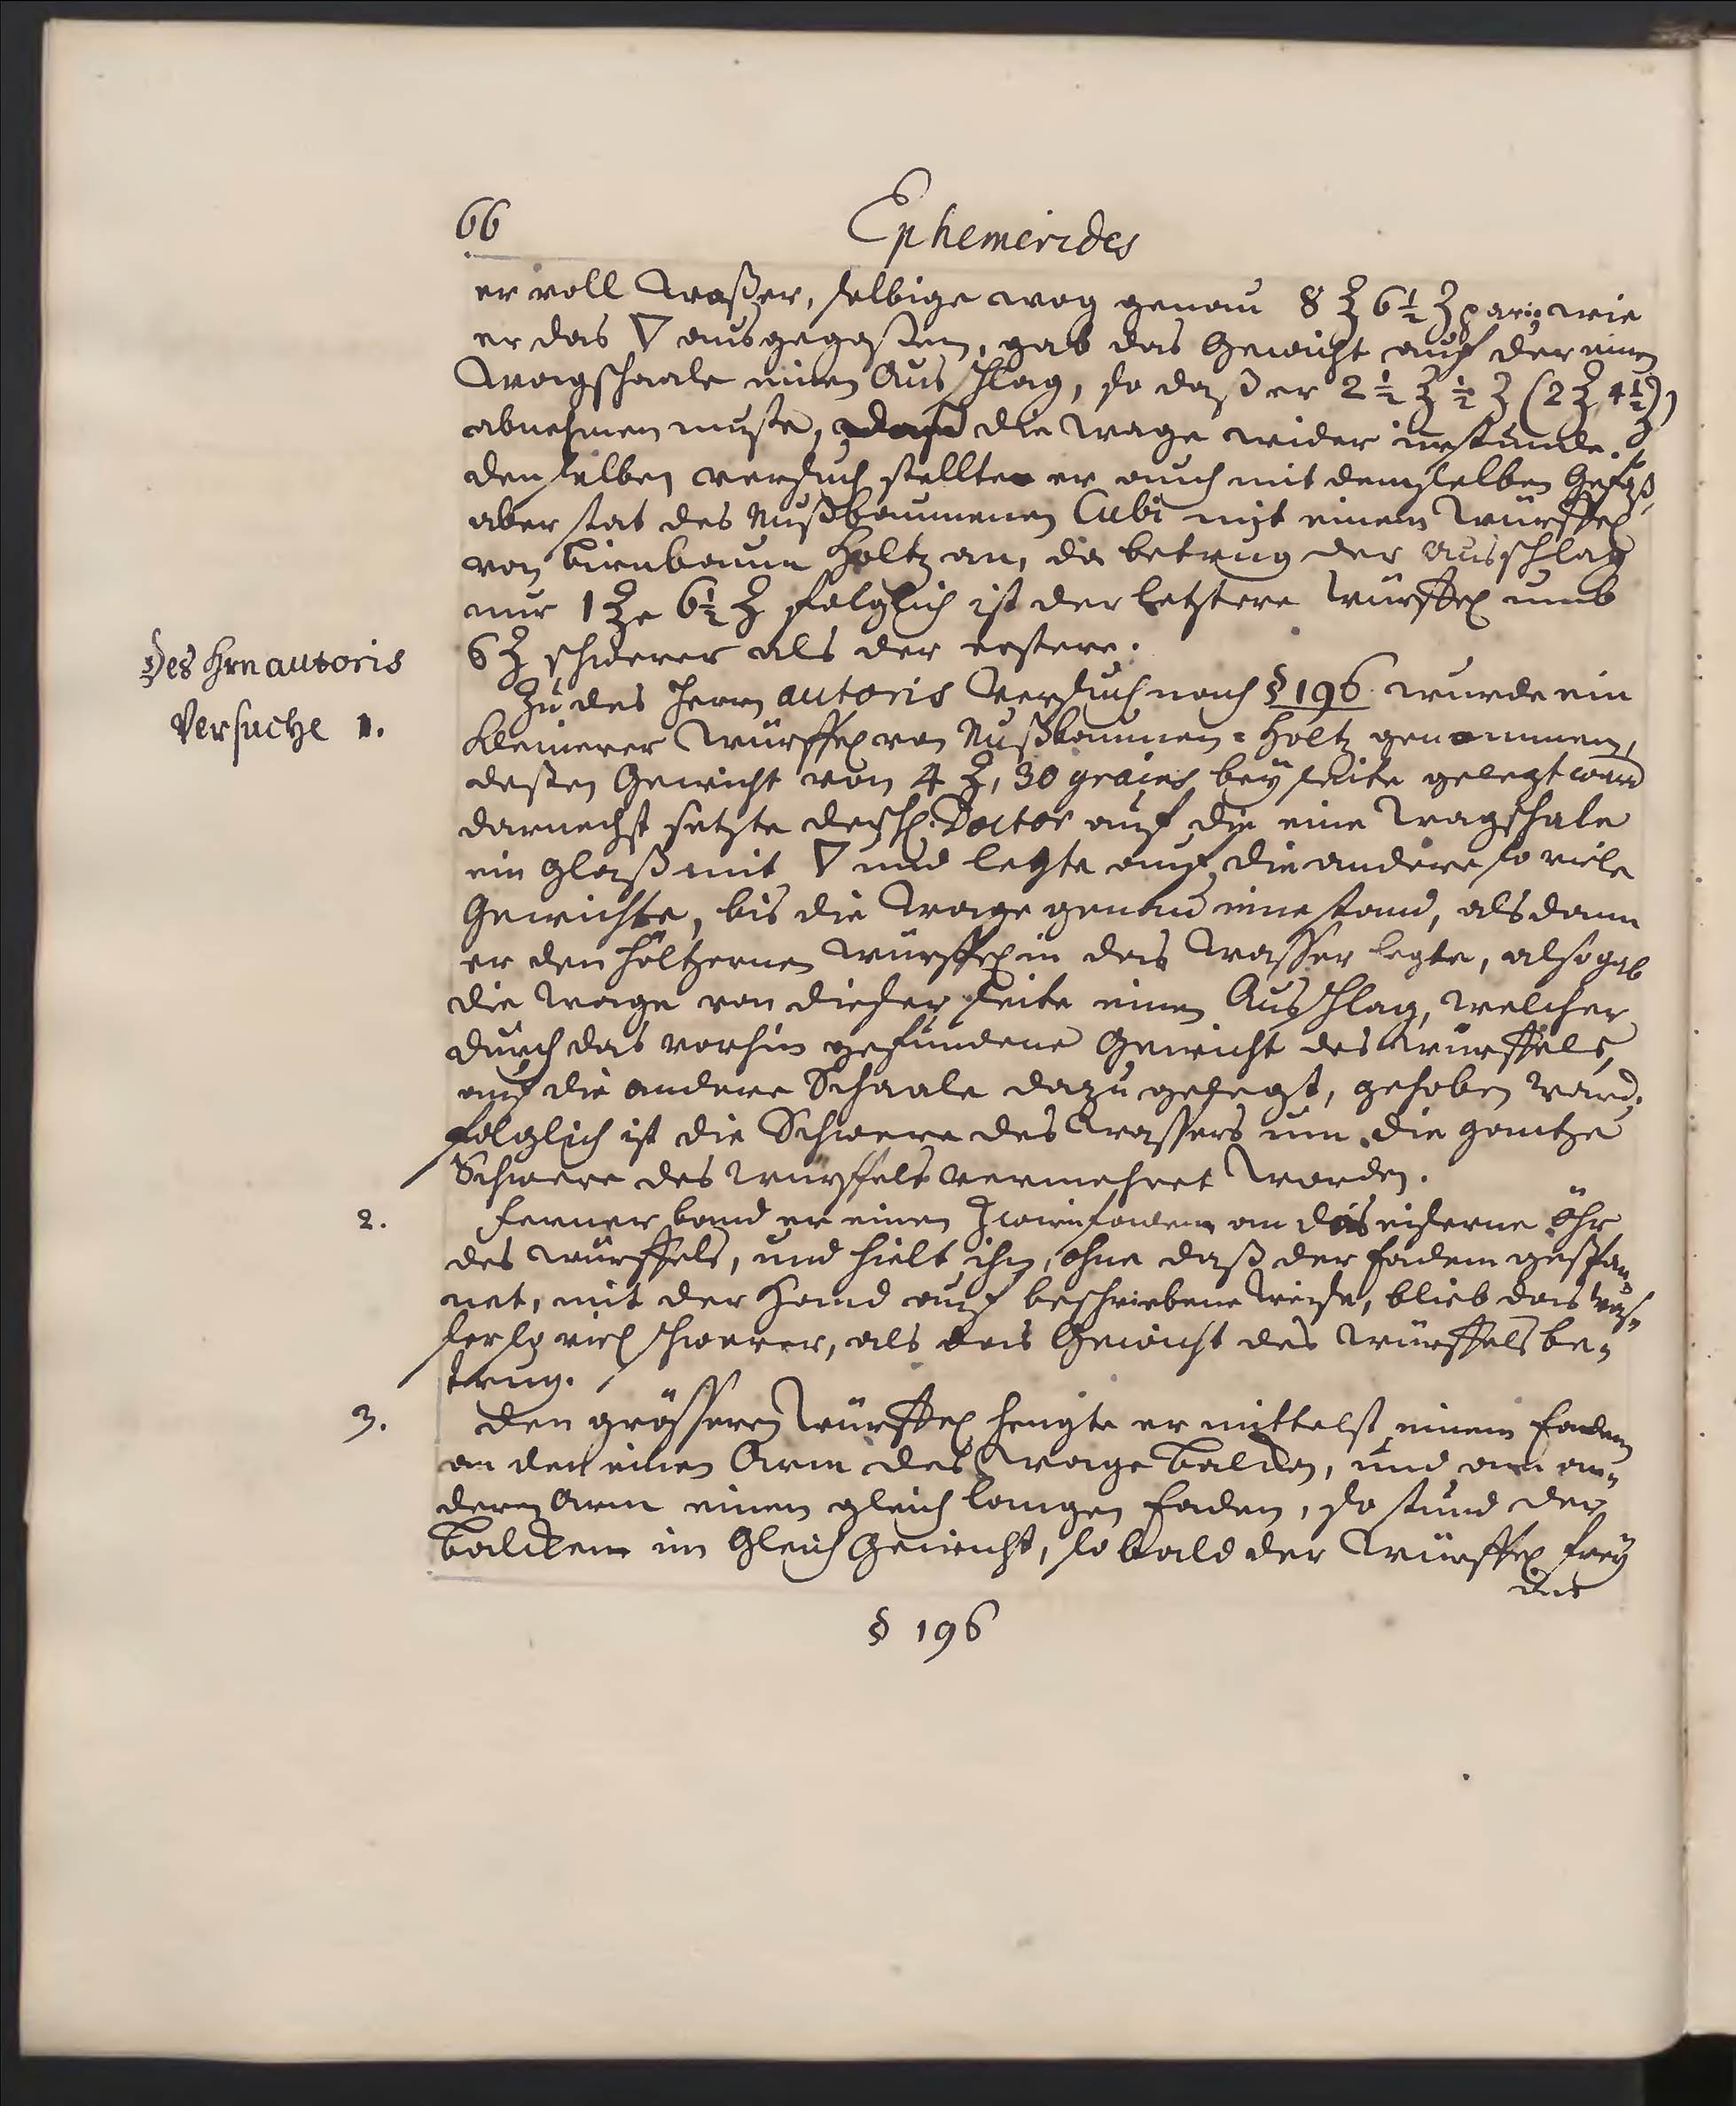 66
Ephemerides
er voll Waßer, selbige wog genau 8 ℥ 6 ½ ʒ wie
er das ▽ ausgegoßen, gab das Gewicht auf der einen
Wagschaale einen Ausschlag, so daß er 2 ½ ℥ ½ ʒ (2 ℥ 4 ½ ʒ)
abnehmen muste, daß die Wage wider innstunde.
denselben versuch stellte er auch mit demselben Gefäß,
aber stat des Nußbaumenen Cubi mit einem Würffel
von birnbaum Holtz an, da betrug der ausschlag
nur 1 ℥ 6½ ʒ folglich ist der letztere Würffel umb
6 ʒ schwerer als der erstere.
Des Hrn autoris
Versuche 1.
Zu des Herrn autoris Versuch nach § 196 wurde ein
kleinerer Würffel von Nußbaumen=Holtz genommen,
deßen Gewicht von 4 ʒ, 30 grains bey seite gelegt ward
darnechst setzte der H. Doctor auf die eine Wagschale
ein Glaß mit ▽ und legte auf die andere so viele
Gewichte, bis die Wage genau inne stand, als dann
er den höltzernen Würffel in das Wasser legte, also gab
die Wage von dieser seite einen Ausschlag, welcher
durch das vorhin gefundene Gewicht des Würffels,
auf die andere Schaale dazu gelegt, gehoben ward.
folglich ist die Schwere des Wassers um die gantze
Schwere des Würffels vermehret worden.
2.
Ferner band er einen Zwirnfadem an das eiserne Öhr
des Würffels, und hielt ihn, ohne daß der fadem gespan=
net, mit der Hand auf beschriebene Weise, blieb das Was=
ser so viel schwerer, als das Gewicht des Würffels be=
trug.
3.
Den grösseren Würffel hengte er mittelst einem fadem
an den einen Arm des Wage balken, und am an=
dern Arm einen gleich langen faden, so stund der
balcken im Gleich Gewicht, so bald der Würffel frey
§ 196